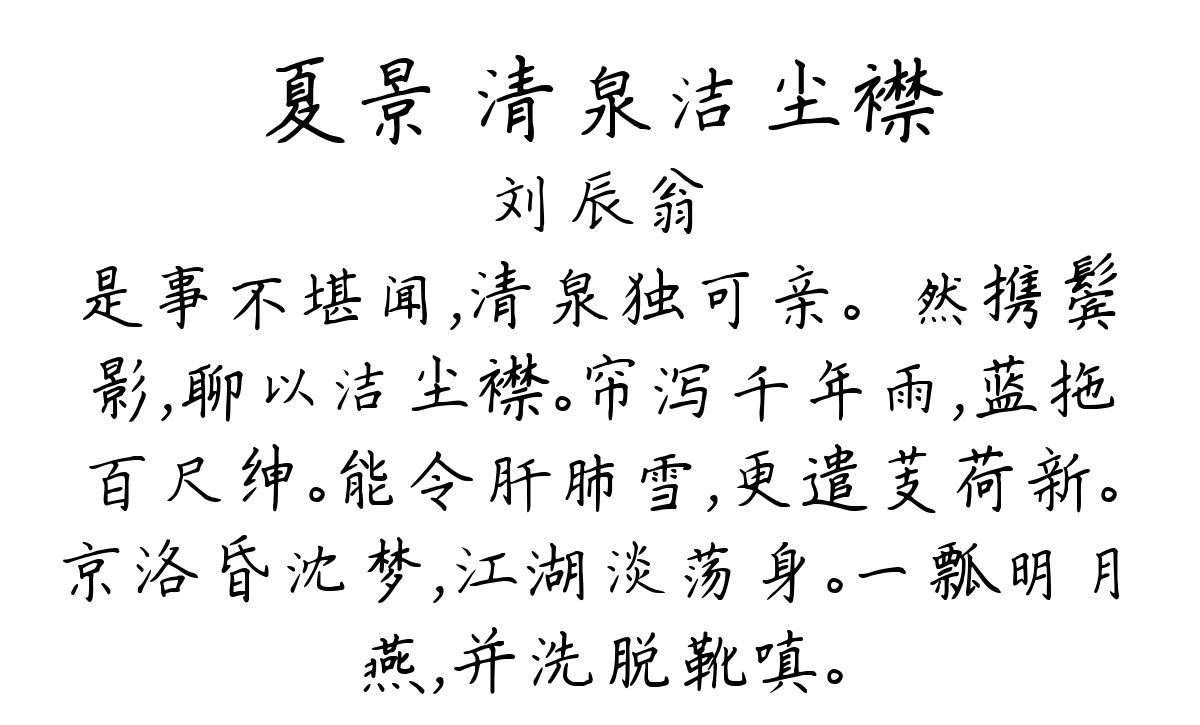 夏景 清泉洁尘襟
刘辰翁
是事不堪闻,清泉独可亲。然携鬓
影,聊以洁尘襟。帘泻千年雨,蓝拖
百尺绅。能令肝肺雪,更遣芰荷新。
京洛昏沈梦,江湖淡荡身。一瓢明月
燕,并洗脱靴嗔。